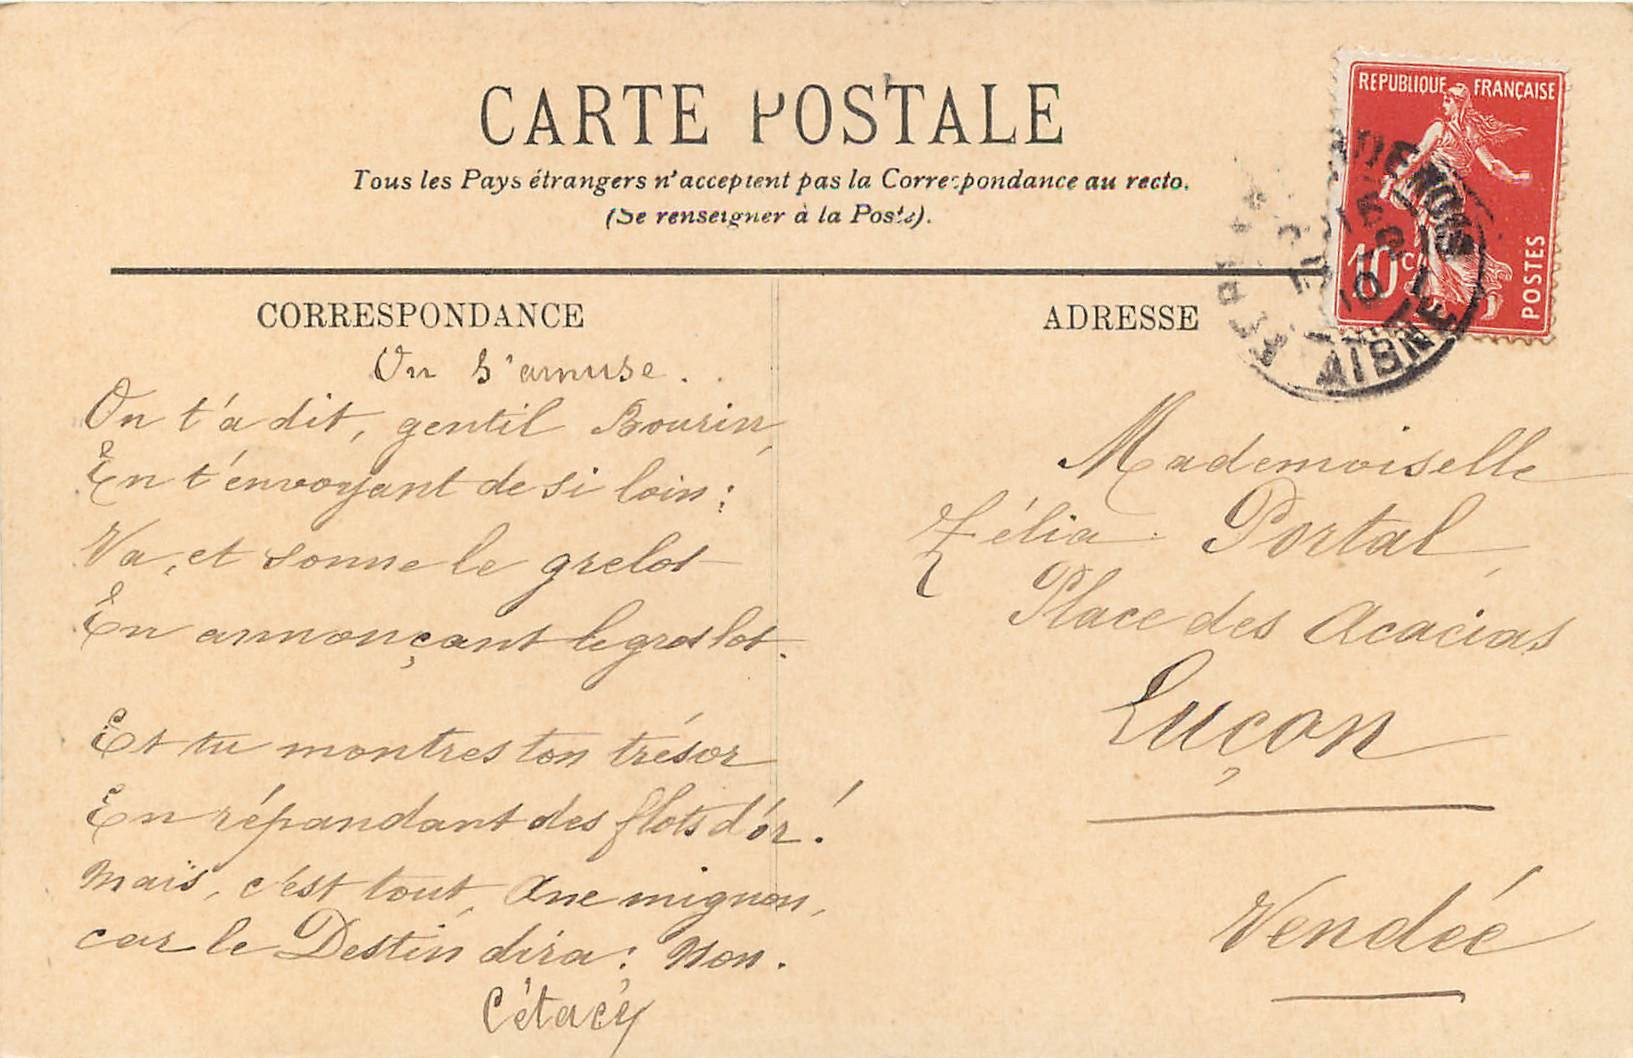 CARTE POSTALE
Tous les Pays étrangers n'acceptent pas la Correspondance au recto.
(Se renseigner à la Poste).
REPUBLIQUE FRANÇAISE
10c
POSTES
AISNE
CORRESPONDANCE
On s'amuse..
On t'a dit, gentil Bourin,
En t'envoyant de si loin:
Va, et sonne le grelot
En annonçant le gros lot.
Et tu montres ton trésor
En répandant des flots d'or!
Mais, c'est tout, Ane mignon,
car le Destin dira: Non.
Cétacéy
ADRESSE
Mademoiselle
Zélia Portal,
Place des Acacias
Luçon
Vendée